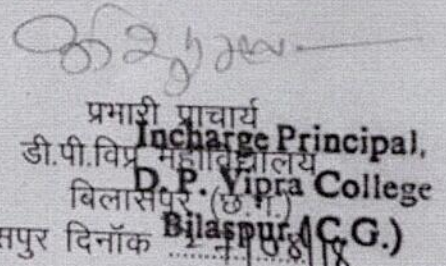 प्रभारी प्राचार्य
Incharge Principal,
डी.पी.विप्र महाविद्यालय
D. P. Vipra College
बिलासपुर (छ.ग.)
Bilaspur (C.G.)
सपुर दिनॉक